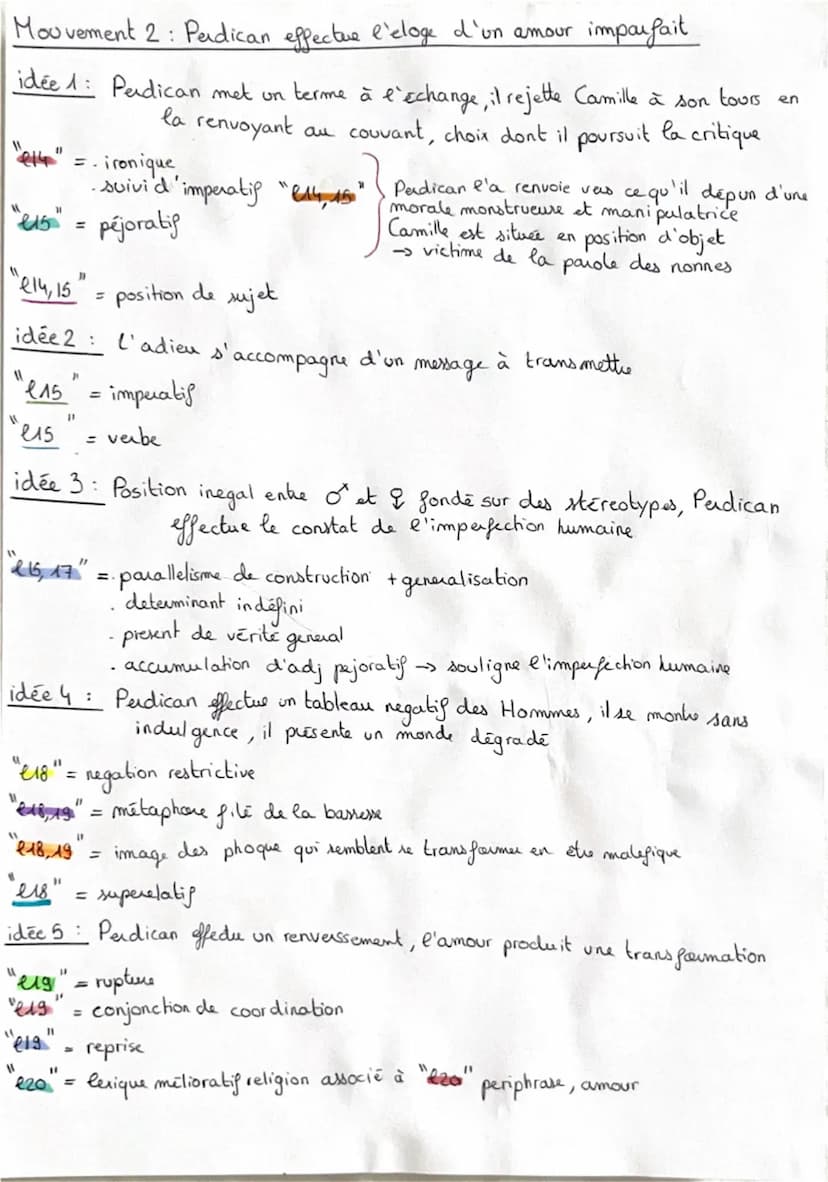 Mouvement 2 : Perdican effectue l'eloge d'un amour imparfait
idée 1 : Perdican met un terme à l'échange, il rejette Camille à son tours en
la renvoyant au couvant, choix dont il poursuit la critique
"l14" = . ironique
. suivi d'imperatif "l14,15"
"l15" = péjoratif
Perdican l'a renvoie vers ce qu'il dépun d'une
morale monstrueuse et manipulatrice
Camille est située en position d'objet
→ victime de la parole des nonnes
"l14,15" = position de sujet
idée 2 : l'adieu s'accompagne d'un message à transmettre
"l15" = imperatif
"l15" = verbe
idée 3 : Position inegal entre ♂ et ♀ fondé sur des stéréotypes, Perdican
effectue le constat de l'imperfection humaine
"l16,17" = . parallelisme de construction + generalisation
. determinant indéfini
. present de vérité general
. accumulation d'adj pejoratif → souligne l'imperfection humaine
idée 4 : Perdican effectue un tableau negatif des Hommes, il se montre sans
indulgence, il présente un monde dégradé
"l18" = negation restrictive
"l18,19" = métaphore filé de la bassesse
"l18,19" = image des phoque qui semblent se transformer en etre malefique
"l18" = superelatif
idée 5 : Perdican effedu un renverssement, l'amour produit une transformation
"l19" = rupture
"l19" = conjonction de coordination
"l19" = reprise
"l20" = lexique mélioratif religion associé à "l20" periphrase, amour